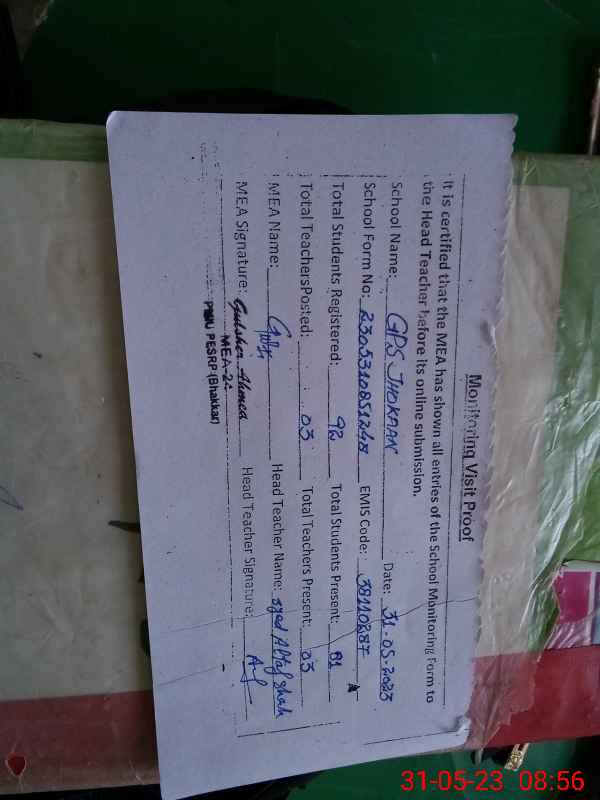 Monitoring Visit Proof
It is certified that the MEA has shown all entries of the School Monitoring Form to
the Head Teacher before its online submission.
School Name: GPS JHOKAAN Date: 31-05-2023
School Form No: EMIS Code: 38110287
Total Students Registered: 92 Total Students Present: 81
Total TeachersPosted: 03 Total Teachers Present: 03
MEA Name: Head Teacher Name: Syed Altaf Shah
MEA Signature: Gulsher Ahmed Head Teacher Signature:
MEA-2
PMU PESRP (Bhakkar)
31-05-23 08:56